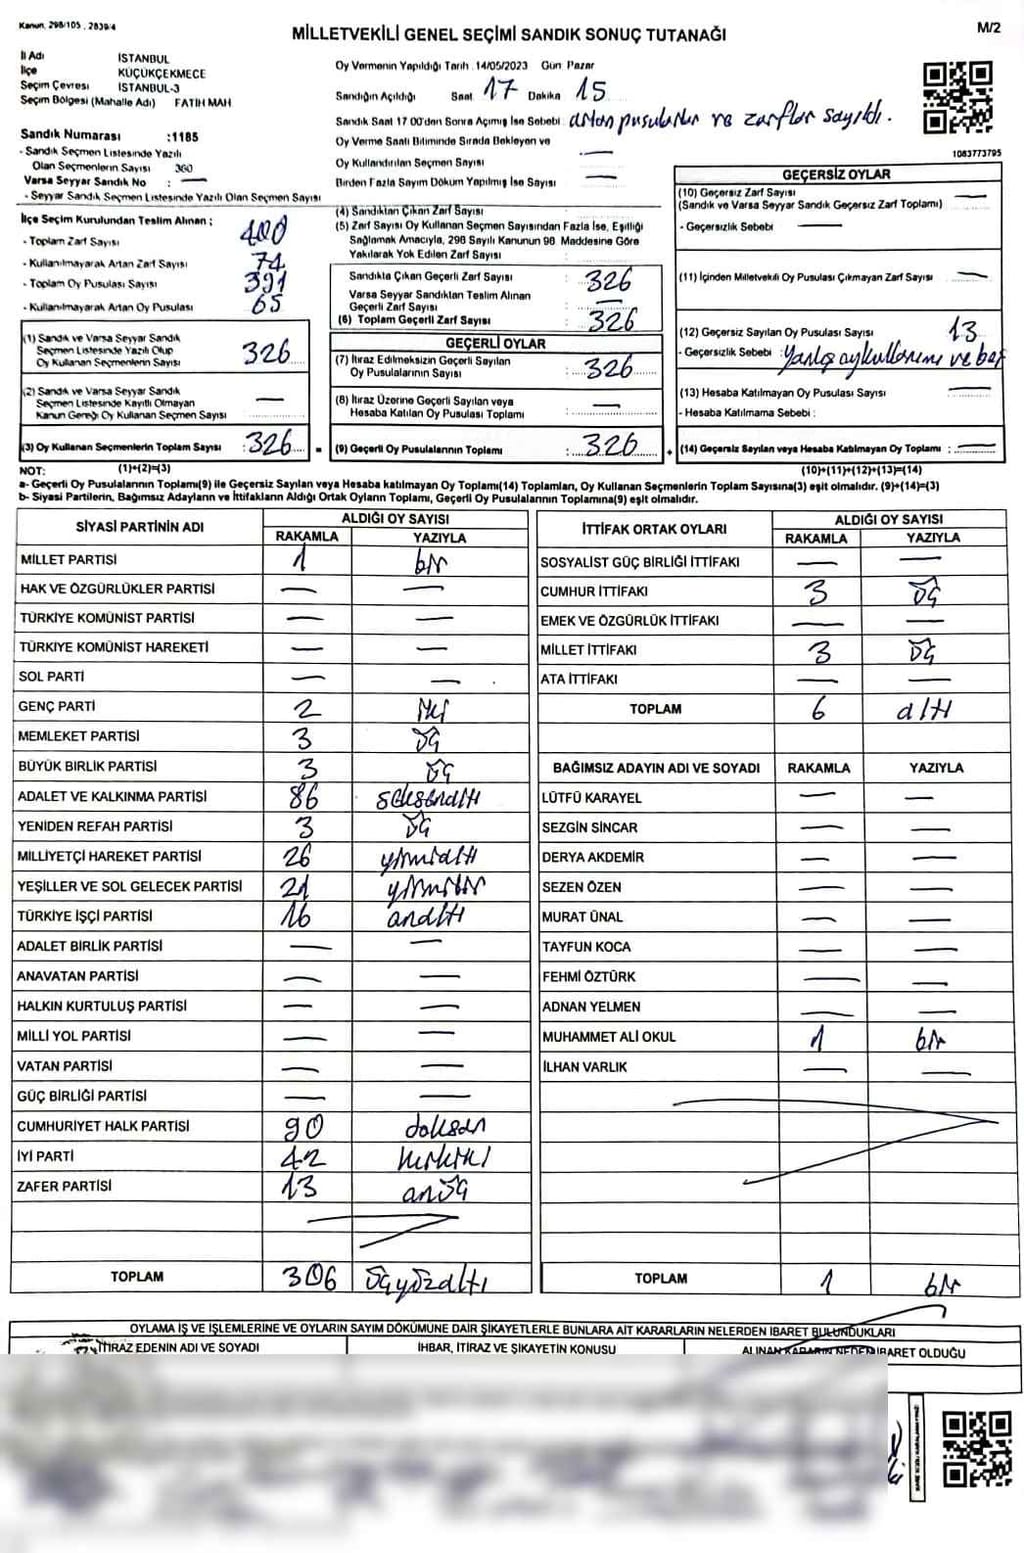 Kanun, 298/105 , 2839/4
MİLLETVEKİLİ GENEL SEÇİMİ SANDIK SONUÇ TUTANAĞI
M/2
İl Adı İSTANBUL
İlçe KÜÇÜKÇEKMECE
Seçim Çevresi İSTANBUL-3
Seçim Bölgesi (Mahalle Adı) FATİH MAH
Sandık Numarası :1185
- Sandık Seçmen Listesinde Yazılı
Olan Seçmenlerin Sayısı 360
Varsa Seyyar Sandık No : —
- Seyyar Sandık Seçmen Listesinde Yazılı Olan Seçmen Sayısı
Oy Vermenin Yapıldığı Tarih :14/05/2023 Gün Pazar
Sandığın Açıldığı Saat 17 Dakika 15
Sandık Saat 17 00'den Sonra Açmış İse Sebebi : artan pusulalar ve zarflar sayıldı.
Oy Verme Saati Bitiminde Sırada Bekleyen ve
Oy Kullandırılan Seçmen Sayısı —
Birden Fazla Sayım Döküm Yapılmış İse Sayısı —
1083773795
İlçe Seçim Kurulundan Teslim Alınan ;
- Toplam Zarf Sayısı 400
- Kullanılmayarak Artan Zarf Sayısı 74
- Toplam Oy Pusulası Sayısı 391
- Kullanılmayarak Artan Oy Pusulası 65
(1) Sandık ve Varsa Seyyar Sandık
Seçmen Listesinde Yazılı Olup
Oy Kullanan Seçmenlerin Sayısı 326
(2) Sandık ve Varsa Seyyar Sandık
Seçmen Listesinde Kayıtlı Olmayan
Kanun Gereği Oy Kullanan Seçmen Sayısı —
(3) Oy Kullanan Seçmenlerin Toplam Sayısı : 326
(1)+(2)=(3)
(4) Sandıktan Çıkan Zarf Sayısı :
(5) Zarf Sayısı Oy Kullanan Seçmen Sayısından Fazla İse, Eşitliği
Sağlamak Amacıyla, 298 Sayılı Kanunun 98 Maddesine Göre
Yakılarak Yok Edilen Zarf Sayısı :
Sandıkta Çıkan Geçerli Zarf Sayısı : 326
Varsa Seyyar Sandıktan Teslim Alınan
Geçerli Zarf Sayısı : —
(6) Toplam Geçerli Zarf Sayısı : 326
GEÇERLİ OYLAR
(7) İtiraz Edilmeksizin Geçerli Sayılan
Oy Pusulalarının Sayısı : 326
(8) İtiraz Üzerine Geçerli Sayılan veya
Hesaba Katılan Oy Pusulası Toplamı : —
= (9) Geçerli Oy Pusulalarının Toplamı : 320
GEÇERSİZ OYLAR
(10) Geçersiz Zarf Sayısı
(Sandık ve Varsa Seyyar Sandık Geçersiz Zarf Toplamı) : —
- Geçersizlik Sebebi : —
(11) İçinden Milletvekili Oy Pusulası Çıkmayan Zarf Sayısı : —
(12) Geçersiz Sayılan Oy Pusulası Sayısı : 13
- Geçersizlik Sebebi :
(13) Hesaba Katılmayan Oy Pusulası Sayısı : —
- Hesaba Katılmama Sebebi :
+ (14) Geçersiz Sayılan veya Hesaba Katılmayan Oy Toplamı : —
(10)+(11)+(12)+(13)=(14)
NOT:
a- Geçerli Oy Pusulalarının Toplamı(9) ile Geçersiz Sayılan veya Hesaba katılmayan Oy Toplamı(14) Toplamları, Oy Kullanan Seçmenlerin Toplam Sayısına(3) eşit olmalıdır. (9)+(14)=(3)
b- Siyasi Partilerin, Bağımsız Adayların ve İttifakların Aldığı Ortak Oyların Toplamı, Geçerli Oy Pusulalarının Toplamına(9) eşit olmalıdır.
SİYASİ PARTİNİN ADI ALDIĞI OY SAYISI
RAKAMLA YAZIYLA
MİLLET PARTİSİ 1 bir
HAK VE ÖZGÜRLÜKLER PARTİSİ — —
TÜRKİYE KOMÜNİST PARTİSİ — —
TÜRKİYE KOMÜNİST HAREKETİ — —
SOL PARTİ — —
GENÇ PARTİ 2 iki
MEMLEKET PARTİSİ 3 üç
BÜYÜK BİRLİK PARTİSİ 3 üç
ADALET VE KALKINMA PARTİSİ 86 seksenaltı
YENİDEN REFAH PARTİSİ 3 üç
MİLLİYETÇİ HAREKET PARTİSİ 26 yirmialtı
YEŞİLLER VE SOL GELECEK PARTİSİ 21 yirmibir
TÜRKİYE İŞÇİ PARTİSİ 16 onaltı
ADALET BİRLİK PARTİSİ — —
ANAVATAN PARTİSİ — —
HALKIN KURTULUŞ PARTİSİ — —
MİLLİ YOL PARTİSİ — —
VATAN PARTİSİ — —
GÜÇ BİRLİĞİ PARTİSİ — —
CUMHURİYET HALK PARTİSİ 90 doksan
İYİ PARTİ 42 kırkiki
ZAFER PARTİSİ 13 onüç
TOPLAM 306 üçyüzaltı
İTTİFAK ORTAK OYLARI ALDIĞI OY SAYISI
RAKAMLA YAZIYLA
SOSYALİST GÜÇ BİRLİĞİ İTTİFAKI — —
CUMHUR İTTİFAKI 3 üç
EMEK VE ÖZGÜRLÜK İTTİFAKI — —
MİLLET İTTİFAKI 3 üç
ATA İTTİFAKI — —
TOPLAM 6 altı
BAĞIMSIZ ADAYIN ADI VE SOYADI RAKAMLA YAZIYLA
LÜTFÜ KARAYEL — —
SEZGİN SİNCAR — —
DERYA AKDEMİR — —
SEZEN ÖZEN — —
MURAT ÜNAL — —
TAYFUN KOCA — —
FEHMİ ÖZTÜRK — —
ADNAN YELMEN — —
MUHAMMET ALİ OKUL 1 bir
İLHAN VARLIK — —
TOPLAM 1 bir
OYLAMA İŞ VE İŞLEMLERİNE VE OYLARIN SAYIM DÖKÜMÜNE DAİR ŞİKAYETLERLE BUNLARA AİT KARARLARIN NELERDEN İBARET BULUNDUKLARI
İTİRAZ EDENİN ADI VE SOYADI İHBAR, İTİRAZ VE ŞİKAYETİN KONUSU ALINAN KARARIN NEDEN İBARET OLDUĞU